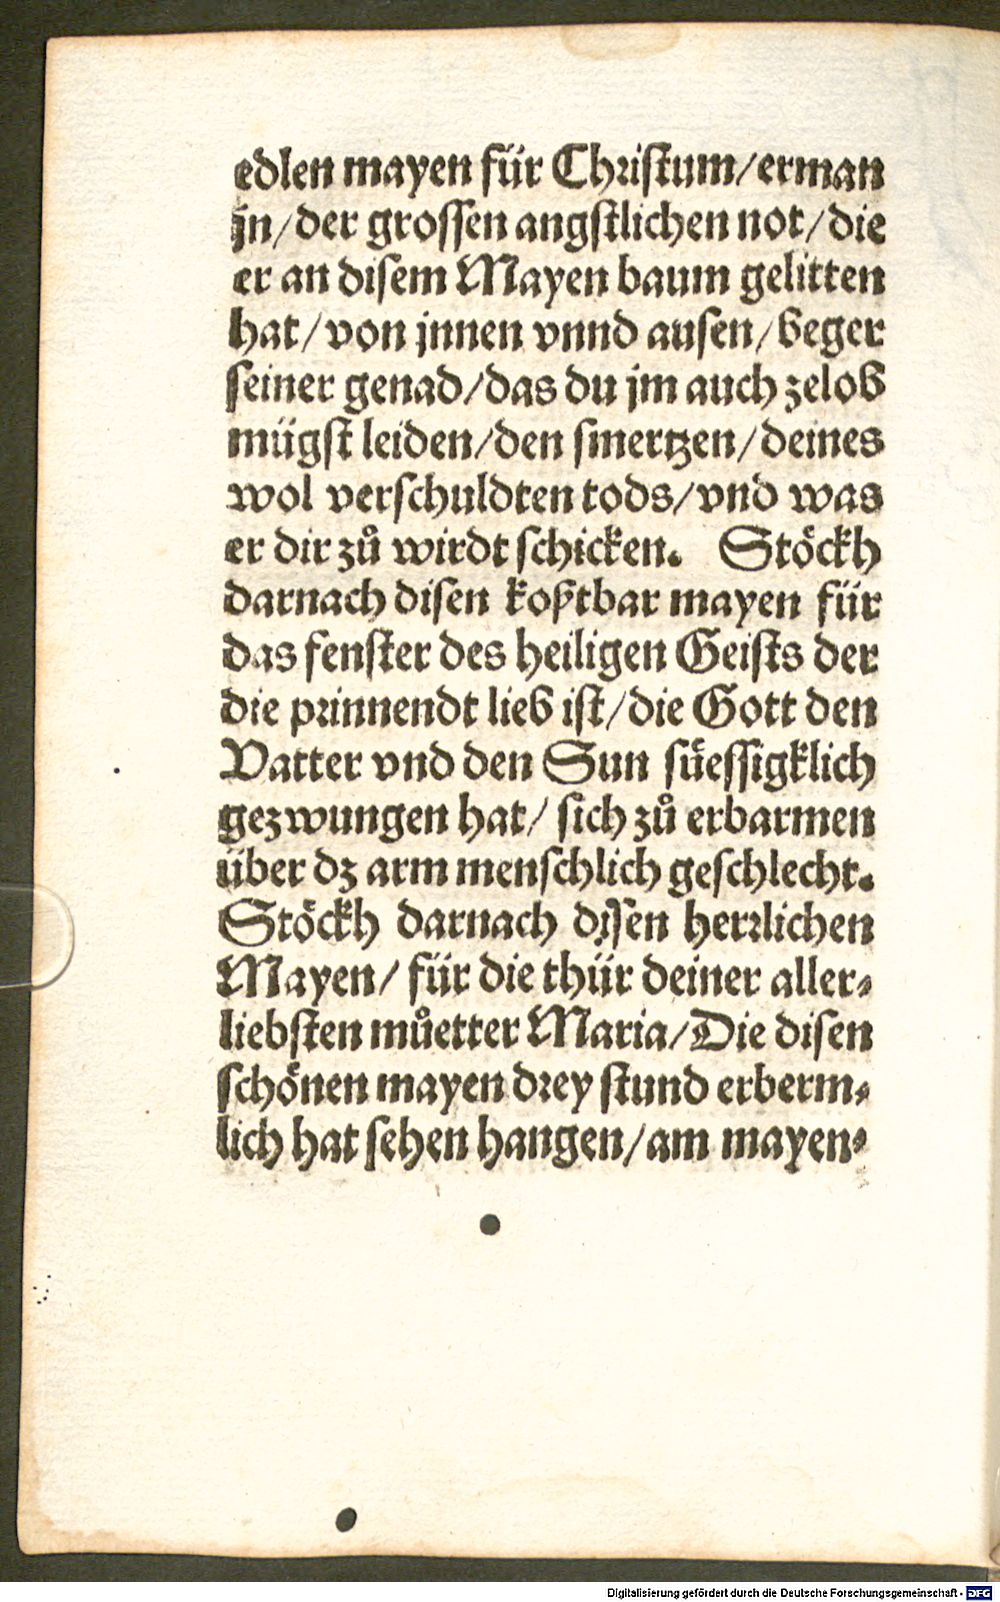 edlen mayen für Christum/erman
jn/der grossen angstlichen not/die
er an disem Mayen baum gelitten
hat/von jnnen vnnd ausen/beger
seiner genad/das du jm auch zelob
mügst leiden/den smertzen/deines
wol verschuldten tods/vnd was
er dir zů wirdt schicken. Stöckh
darnach disen koßtbar mayen für
das fenster des heiligen Geists der
die prinnendt lieb ist/die Gott den
Vatter vnd den Sun süessigklich
gezwungen hat/ sich zů erbarmen
über dz arm menschlich geschlecht.
Stöckh darnach disen herrlichen
Mayen/ für die thür deiner aller-
liebsten můetter Maria/Die disen
schönen mayen drey stund erberm-
lich hat sehen hangen/am mayen-
Digitalisierung gefördert durch die Deutsche Forschungsgemeinschaft - DFG